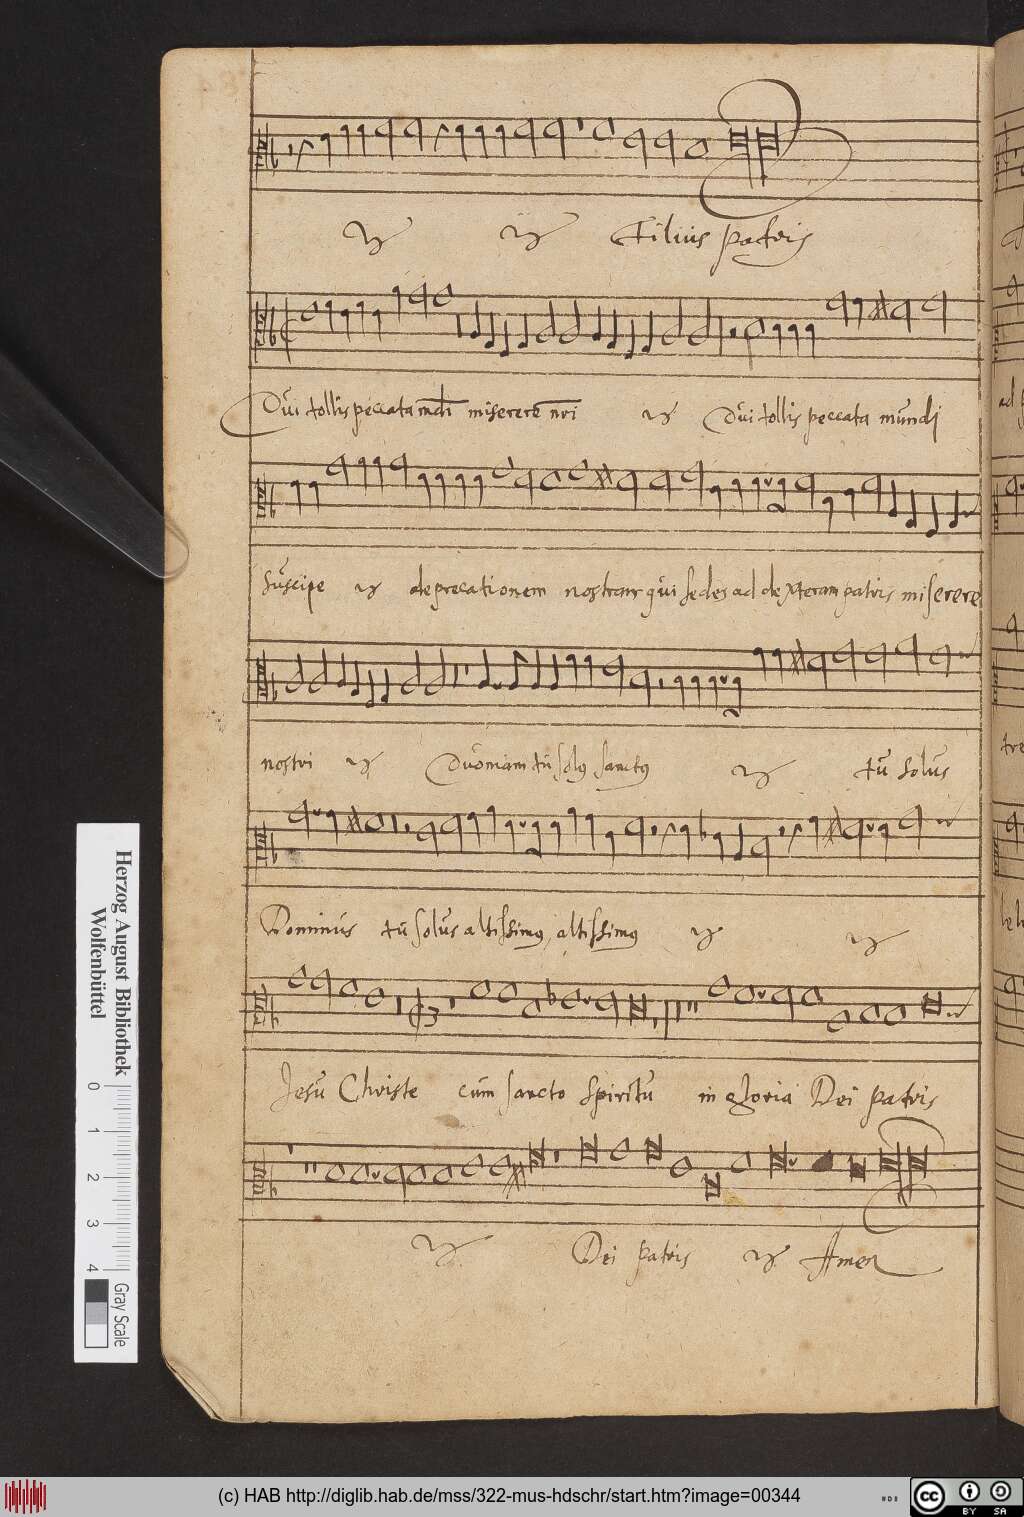 Filius patris
Qui tollis peccata mdi miserere nri Qui tollis peccata mundi
Suscipe deprecationem nostram qui sedes ad dexteram patris miserere
nostri Quoniam tu solus sanctus tu solus
Dominus tu solus altissimus, altissimus
Jesu Christe cum sancto spiritu in gloria Dei patris
Dei patris Amen
Herzog August Bibliothek
Wolfenbüttel
0 1 2 3 4
Gray Scale
(c) HAB http://diglib.hab.de/mss/322-mus-hdschr/start.htm?image=00344
cc BY SA